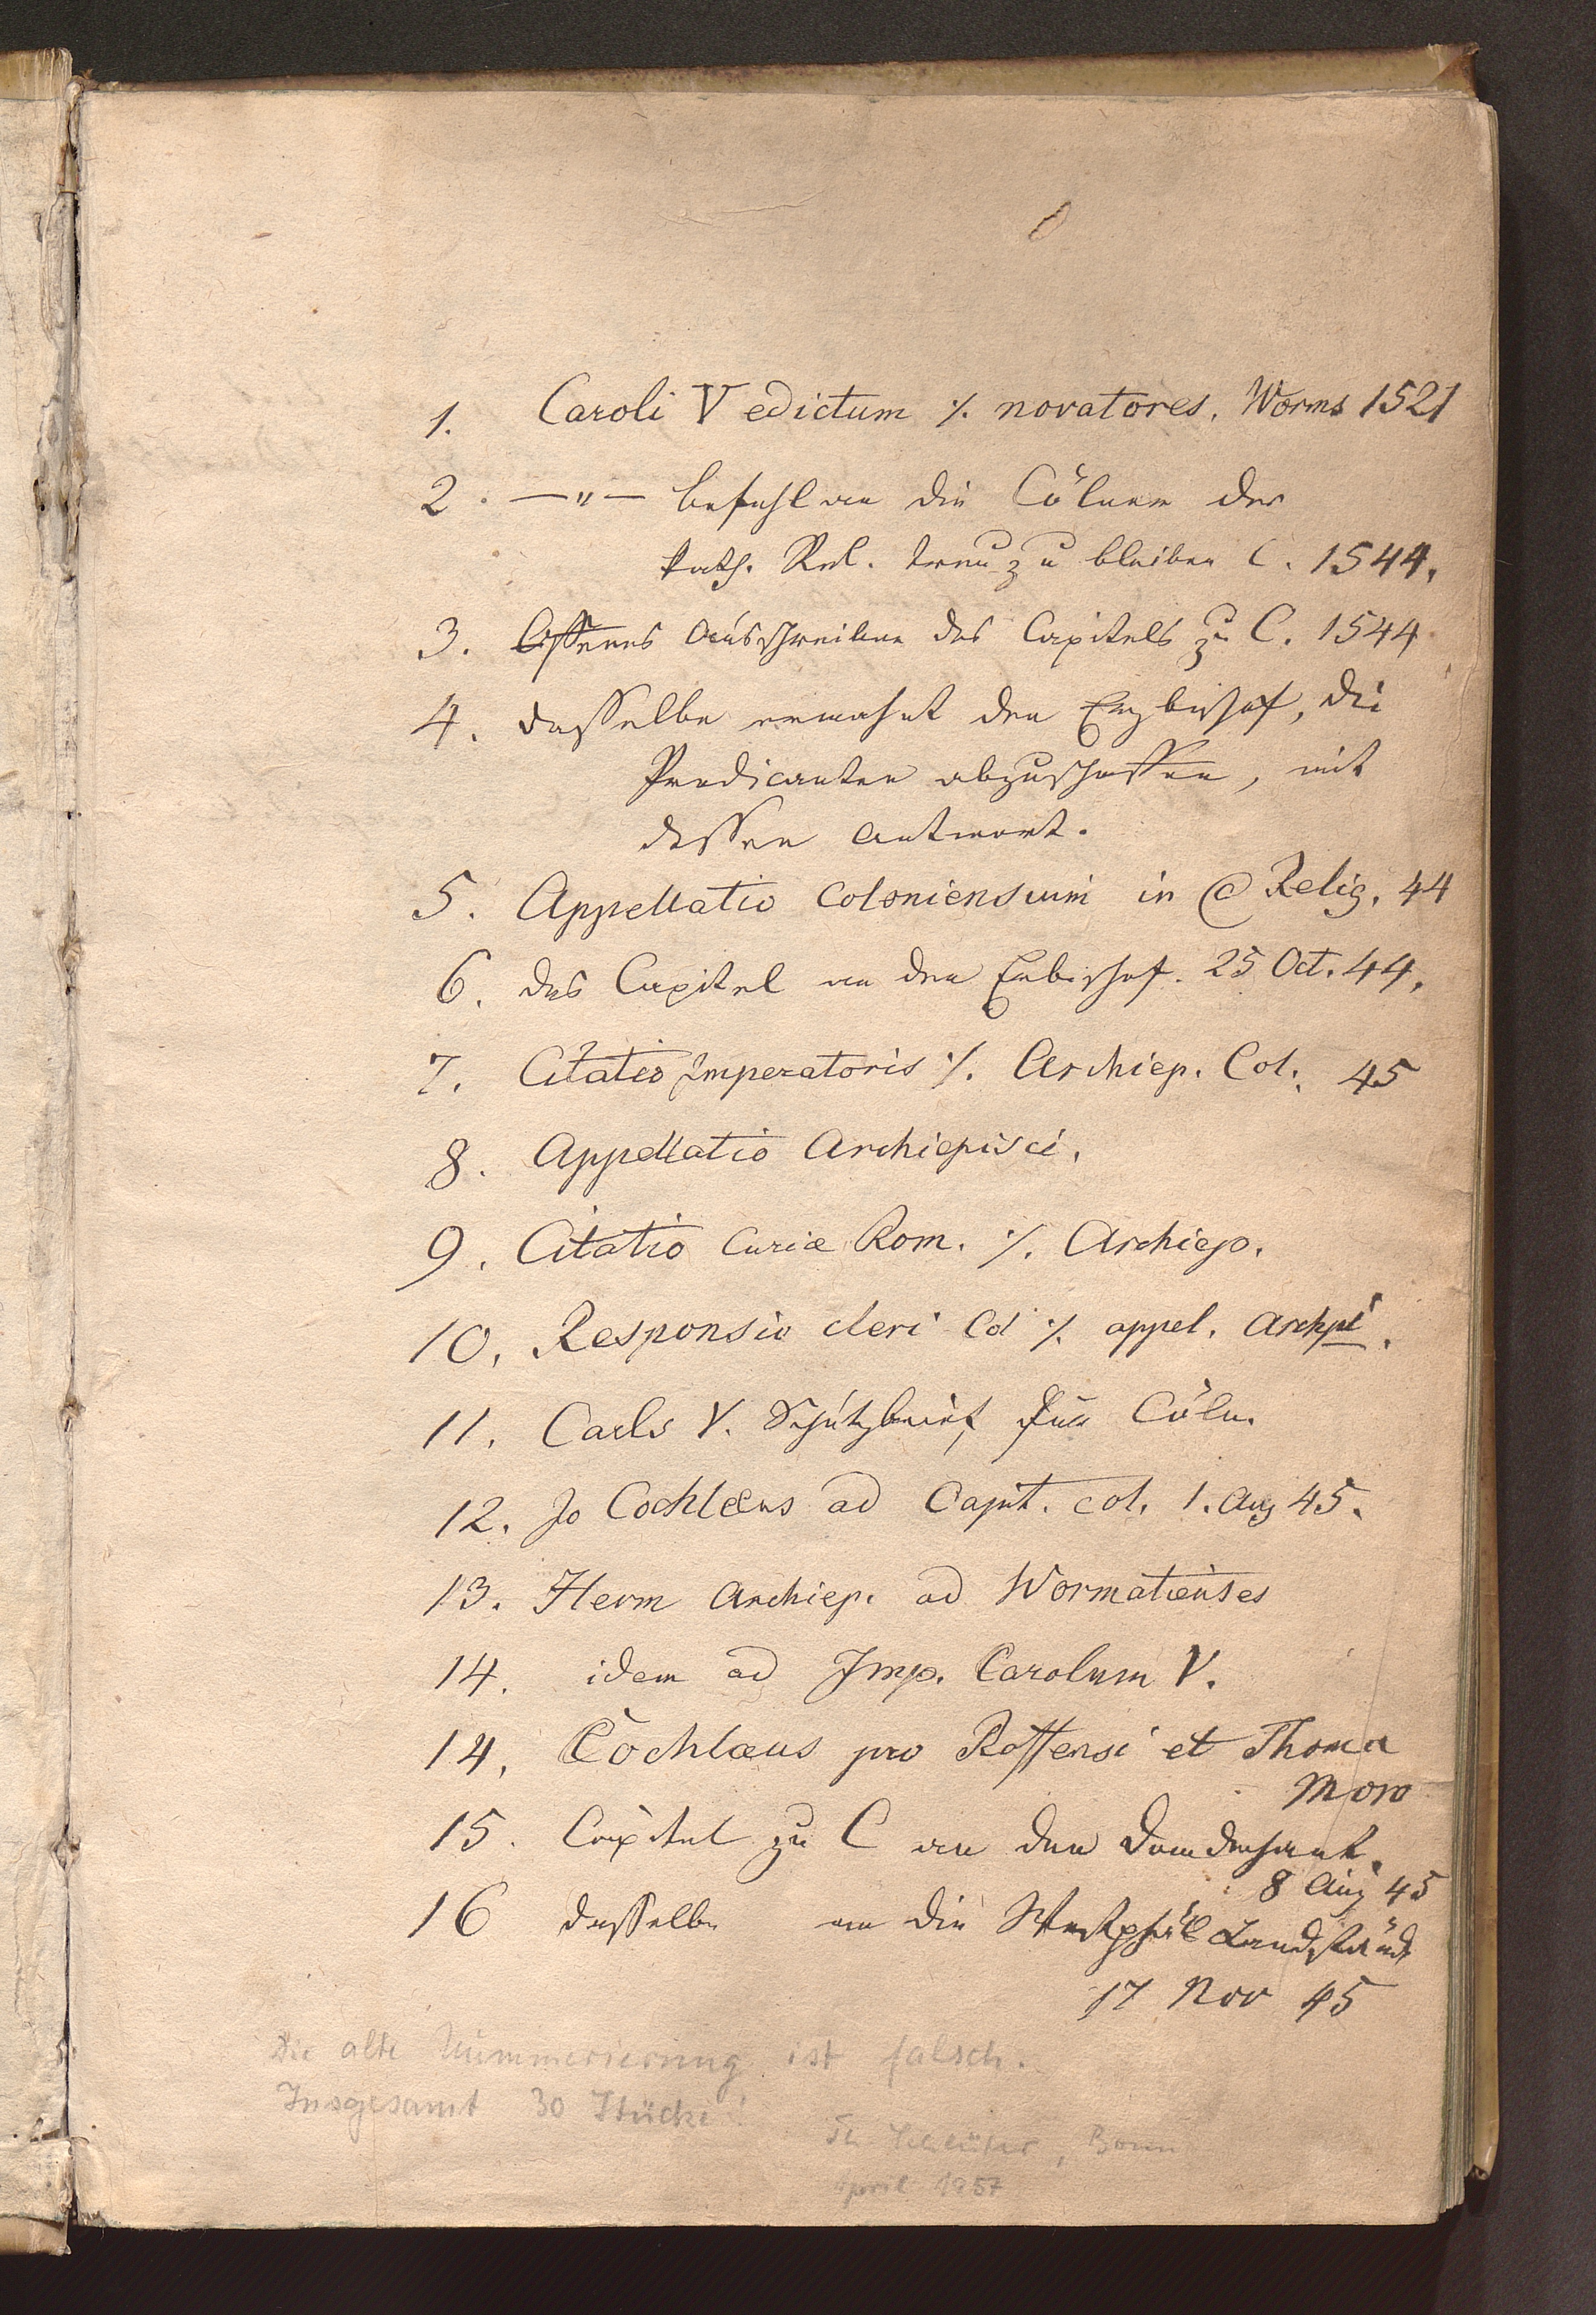 1. Caroli V edictum ./. novatores. Worms 1521
2. —"— Befehl an die Cölner der
kath. Rel. treu zu bleiben C. 1544.
3. Offenes Ausschreiben des Capitels zu C. 1544
4. dasselbe ermahnt den Erzbischof, die
Predicanten abzuschaffen, mit
dessen Antwort.
5. Appellatio Coloniensium in @ Relig. 44
6. das Capitel an den Erbischof. 25 Oct. 44.
7. Citatio Imperatoris ./. Archiep. Col. 45
8. Appellatio Archiepisci.
9. Citatio Curiæ Rom. ./. Archiep.
10. Responsio cleri Col ./. appel. Archpi.
11. Carls V. Schutzbrief für Cöln.
12. Jo Cochlæus ad Capit. Col. 1. Aug 45.
13. Herm Archiep. ad Wormatienses
14. idem ad Imp. Carolum V.
14. Cochlæus pro Roffensi et Thoma
Moro
15. Capitel zu C an den Domdechant.
8 Aug 45
16 dasselbe an die Westphäl Landstände
17 Nov 45
Die alte Nummerierung ist falsch.
Insgesamt 30 Stücke!
Th Schlüter, Bonn
April 1957